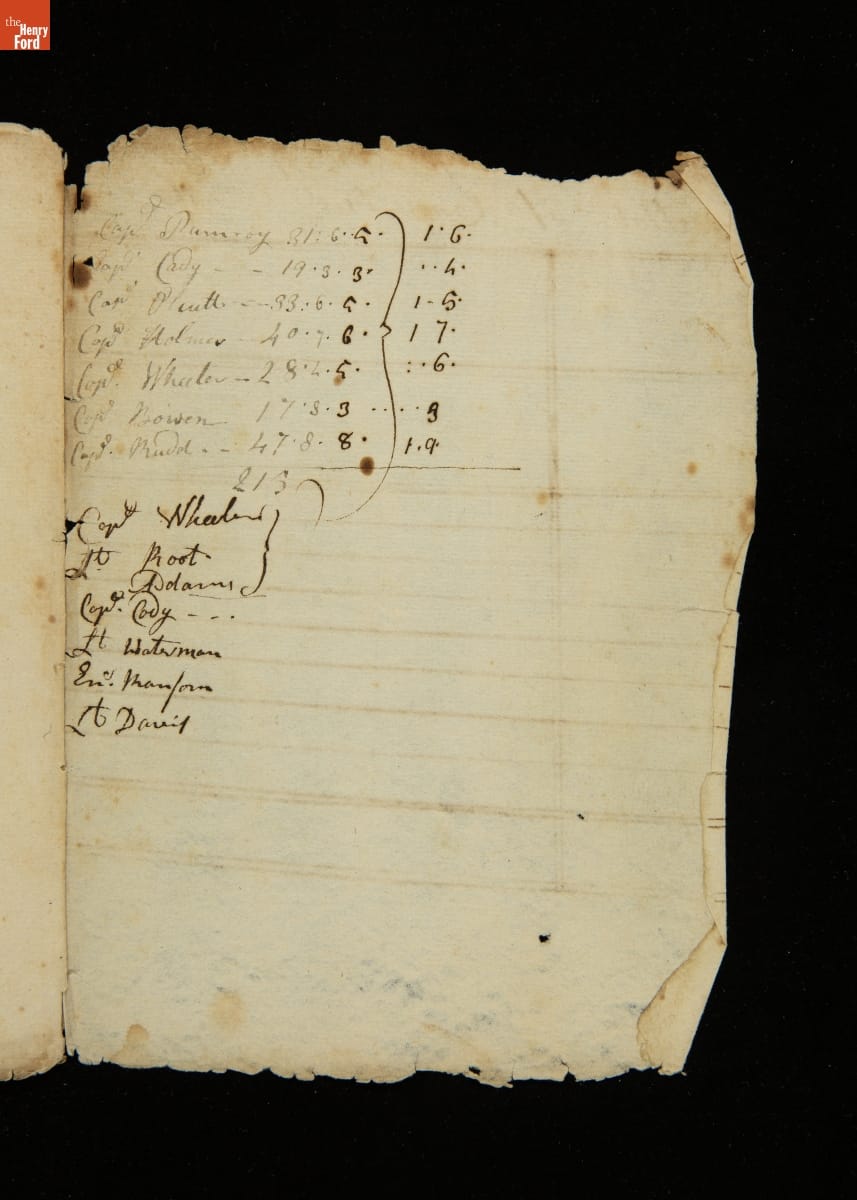 the Henry Ford
Capt Pumroy 31 : 6 . 5 . 1 . 6 .
Capt Cady - - 19 . 3 . 3 . . . 4 .
Capt - - 33 . 6 . 5 . 1 - 5
Capt Holmes - 40 . 7 . 6 . 1 7 .
Capt. Wheeler - 28 . 4 . 5 . : . 6 .
Capt Bowen 17 . 3 . 3 . . . . 3
Capt. Rudd - - 47 . 8 . 8 . 1 . 9
213
Capt Wheeler
Lt Root
Adams
Capt. Cady - - .
Lt Waterman
Ens. Ransom
Lt Davis